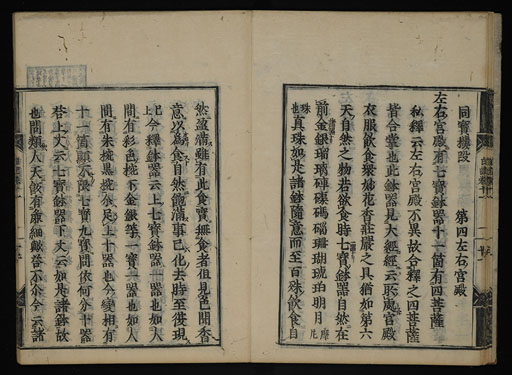 同寶樓段
第四左右宮殿
左右宮殿有七寶鉢器十一箇有四菩薩
私釋云左右宮殿不異故合釋之四菩薩
皆合掌也此鉢器見大經經云取處宮殿
衣服飲食衆妙花香莊嚴之具猶如第六
天自然之物若欲食時七寶鉢器自然在
前金銀瑠璃硨磲碼碯珊瑚琥珀明月摩尼
珠真珠如是諸鉢隨意而至百味飲食自
然盈滿雖有此食實無食者但見色聞香
意以爲食自然飽滿事已化去時至復現
已上今釋鉢器云上七寶鉢器一寶也如人
間有彩色椀下金銀等一寶一器也如人
間有朱椀黑椀
十一箇願不限七寶九寶間依何分十器
答上文云七寶鉢器下文云如是諸鉢故
也問類人天飯有麁細歟答不尒今云諸